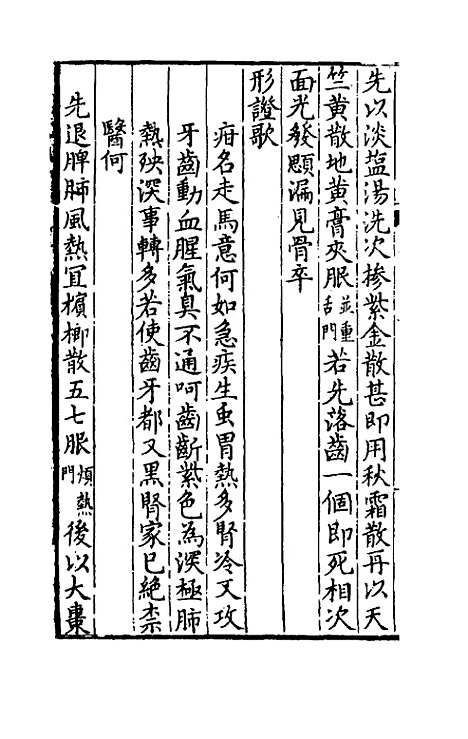 先以淡塩湯洗次摻紫金散甚即用秋霜散再以天
竺黄散地黄膏夾服並重舌門若先落齒一個即死相次
面光發顋漏見骨卒
形證歌
疳名走馬意何如急疾生虫胃熱多腎冷又攻
牙齒動血腥氣臭不通呵齒齗紫色為深極肺
熱殃深事轉多若使齒牙都又黑腎家已絶柰
醫何
先退脾肺風熱冝檳榔散五七服煩熱門後以大棗